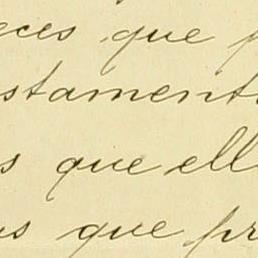 eces que p
stament
s que ell
us que pr